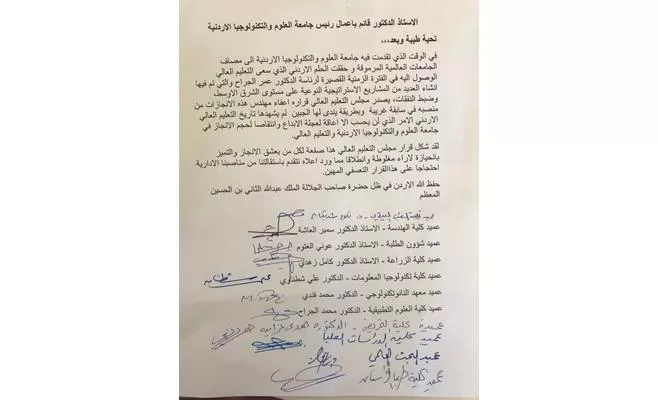 الاستاذ الدكتور قائم باعمال رئيس جامعة العلوم والتكنولوجيا الاردنية
تحية طيبة وبعد،،،
في الوقت الذي تقدمت فيه جامعة العلوم والتكنولوجيا الاردنية الى مصاف
الجامعات العالمية المرموقة و حققت الحلم الاردني الذي سعى التعليم العالي
الوصول اليه في الفترة الزمنية القصيرة لرئاسة الدكتور عمر الجراح والتي تم فيها
انشاء العديد من المشاريع الاستراتيجية النوعية على مستوى الشرق الاوسط
وضبط النفقات، يصدر مجلس التعليم العالي قراره اعفاء مهندس هذه الانجازات من
منصبه في سابقة غريبة وبطريقة يندى لها الجبين لم يشهدها تاريخ التعليم العالي
الاردني الامر الذي لن يحسب الا اعاقة لعجلة الابداع وانتقاصا لحجم الانجاز في
جامعة العلوم والتكنولوجيا الاردنية والتعليم العالي.
لقد شكل قرار مجلس التعليم العالي هذا صفعة لكل من يعشق الانجاز والتميز
بانحيازة لاراء مغلوطة وانطلاقا مما ورد اعلاه نتقدم باستقالتنا من مناصبنا الادارية
احتجاجا على هذاالقرار التعسفي المهين.
حفظ الله الاردن في ظل حضرة صاحب الجلالة الملك عبدالله الثاني بن الحسين
المعظم
عميد
عميد كلية الهندسة - الاستاذ الدكتور سمير العاشة
عميد شؤون الطلبة - الاستاذ الدكتور عوني العتوم
عميد كلية الزراعة - الاستاذ الدكتور كامل زهدي
عميد كلية تكنولوجيا المعلومات - الدكتور علي شطناوي
عميد معهد النانوتكنولوجي - الدكتور محمد فندي
عميد كلية العلوم التطبيقية - الدكتور محمد الجراح
عميدة كلية التمريض - الدكتورة هدى غرايبه
عميد كلية الدراسات العليا
عميد البحث العلمي
عميد كلية طب الأسنان